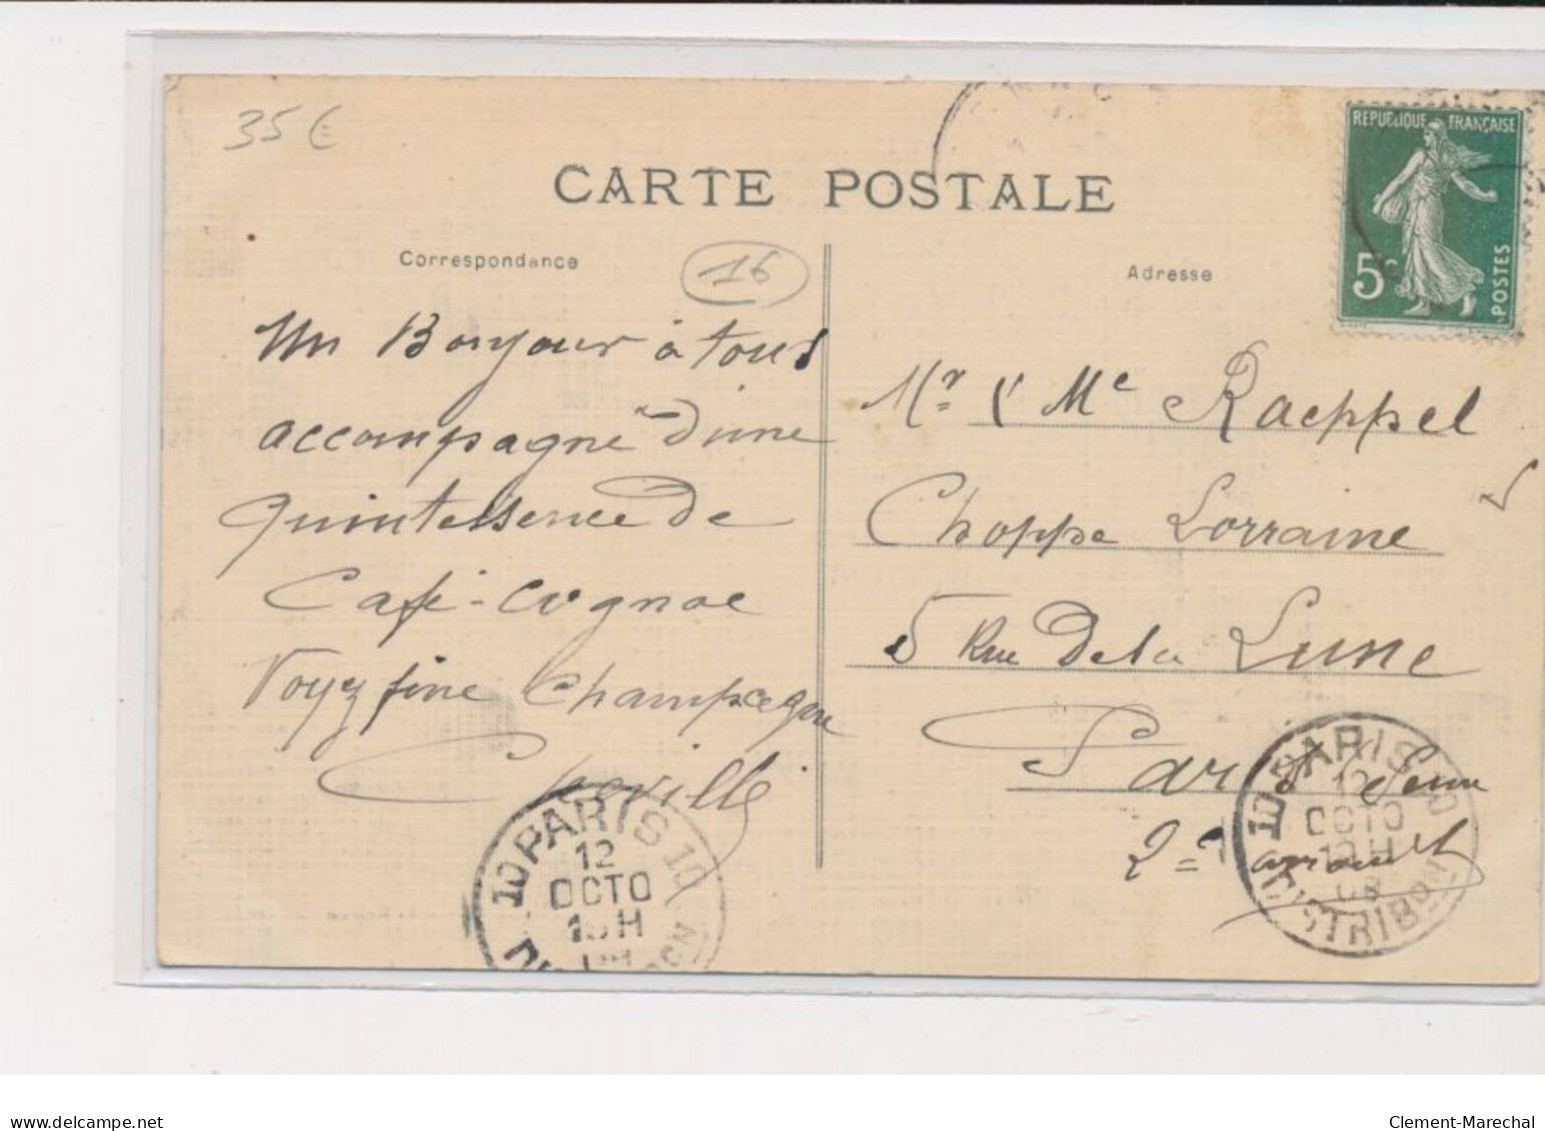 35€
CARTE POSTALE
Correspondance
16
Adresse
REPUBLIQUE FRANÇAISE
5c
POSTES
Un Bonjour à tous
accompagné d'une
quintessence de
Café-Cognac
Voyez fine Champagne
Mr & Me Raeppel
Choppe Lorraine
5 Rue De la Lune
Paris Seine
2e
10 PARIS 10
12
OCTO
H
10 PARIS 10
12
OCTO
H
08
DISTRIBON
delcampe.net
Clement-Marechal